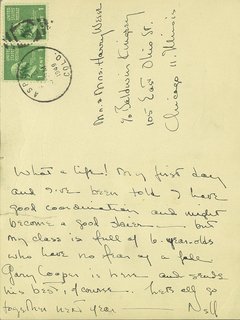 ASPEN
COLO.
1948
Mr. & Mrs. Harry Weese
% Baldwin Kingrey
105 East Ohio St.
Chicago 11, Illinois
What a life! My first day
and I've been told I have
good coordination and might
become a good skier — but
my class is full of 6-year-olds
who have no fear of a fall
Gary Cooper is here and sends
his best, of course. Let's all go
together next year — Nell